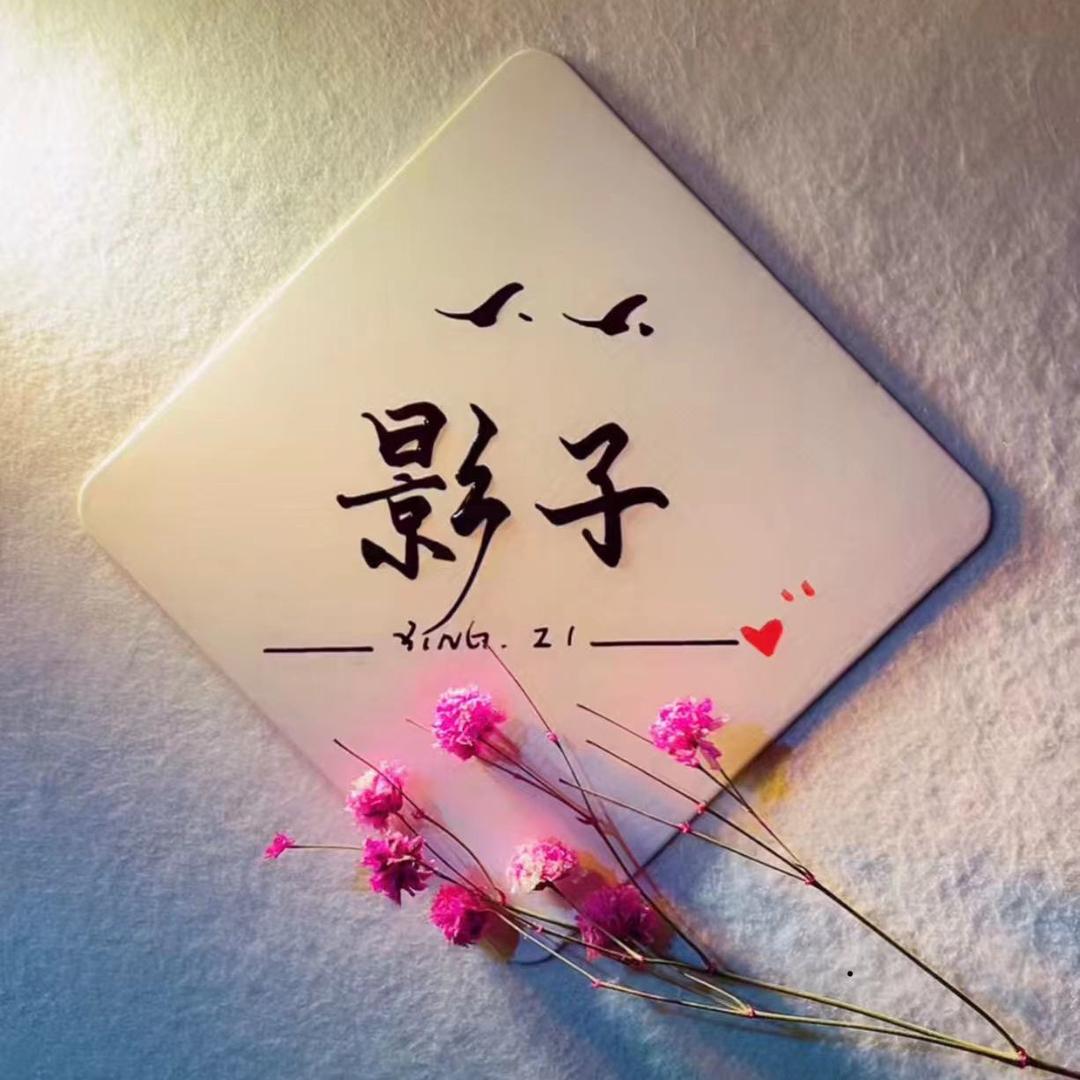 影子
YING. ZI